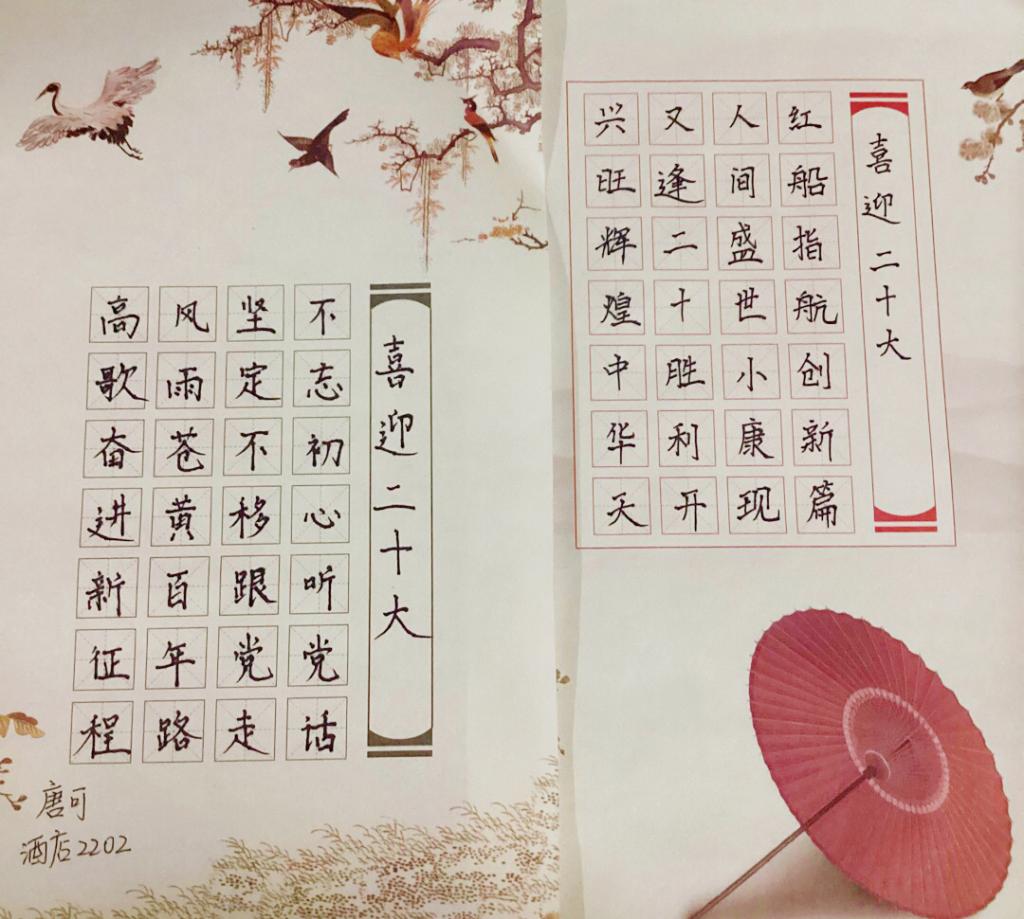 喜迎二十大
红船指航创新篇
人间盛世小康现
又逢二十胜利开
兴旺辉煌中华天
喜迎二十大
不忘初心听党话
坚定不移跟党走
风雨苍黄百年路
高歌奋进新征程
唐可
酒店2202